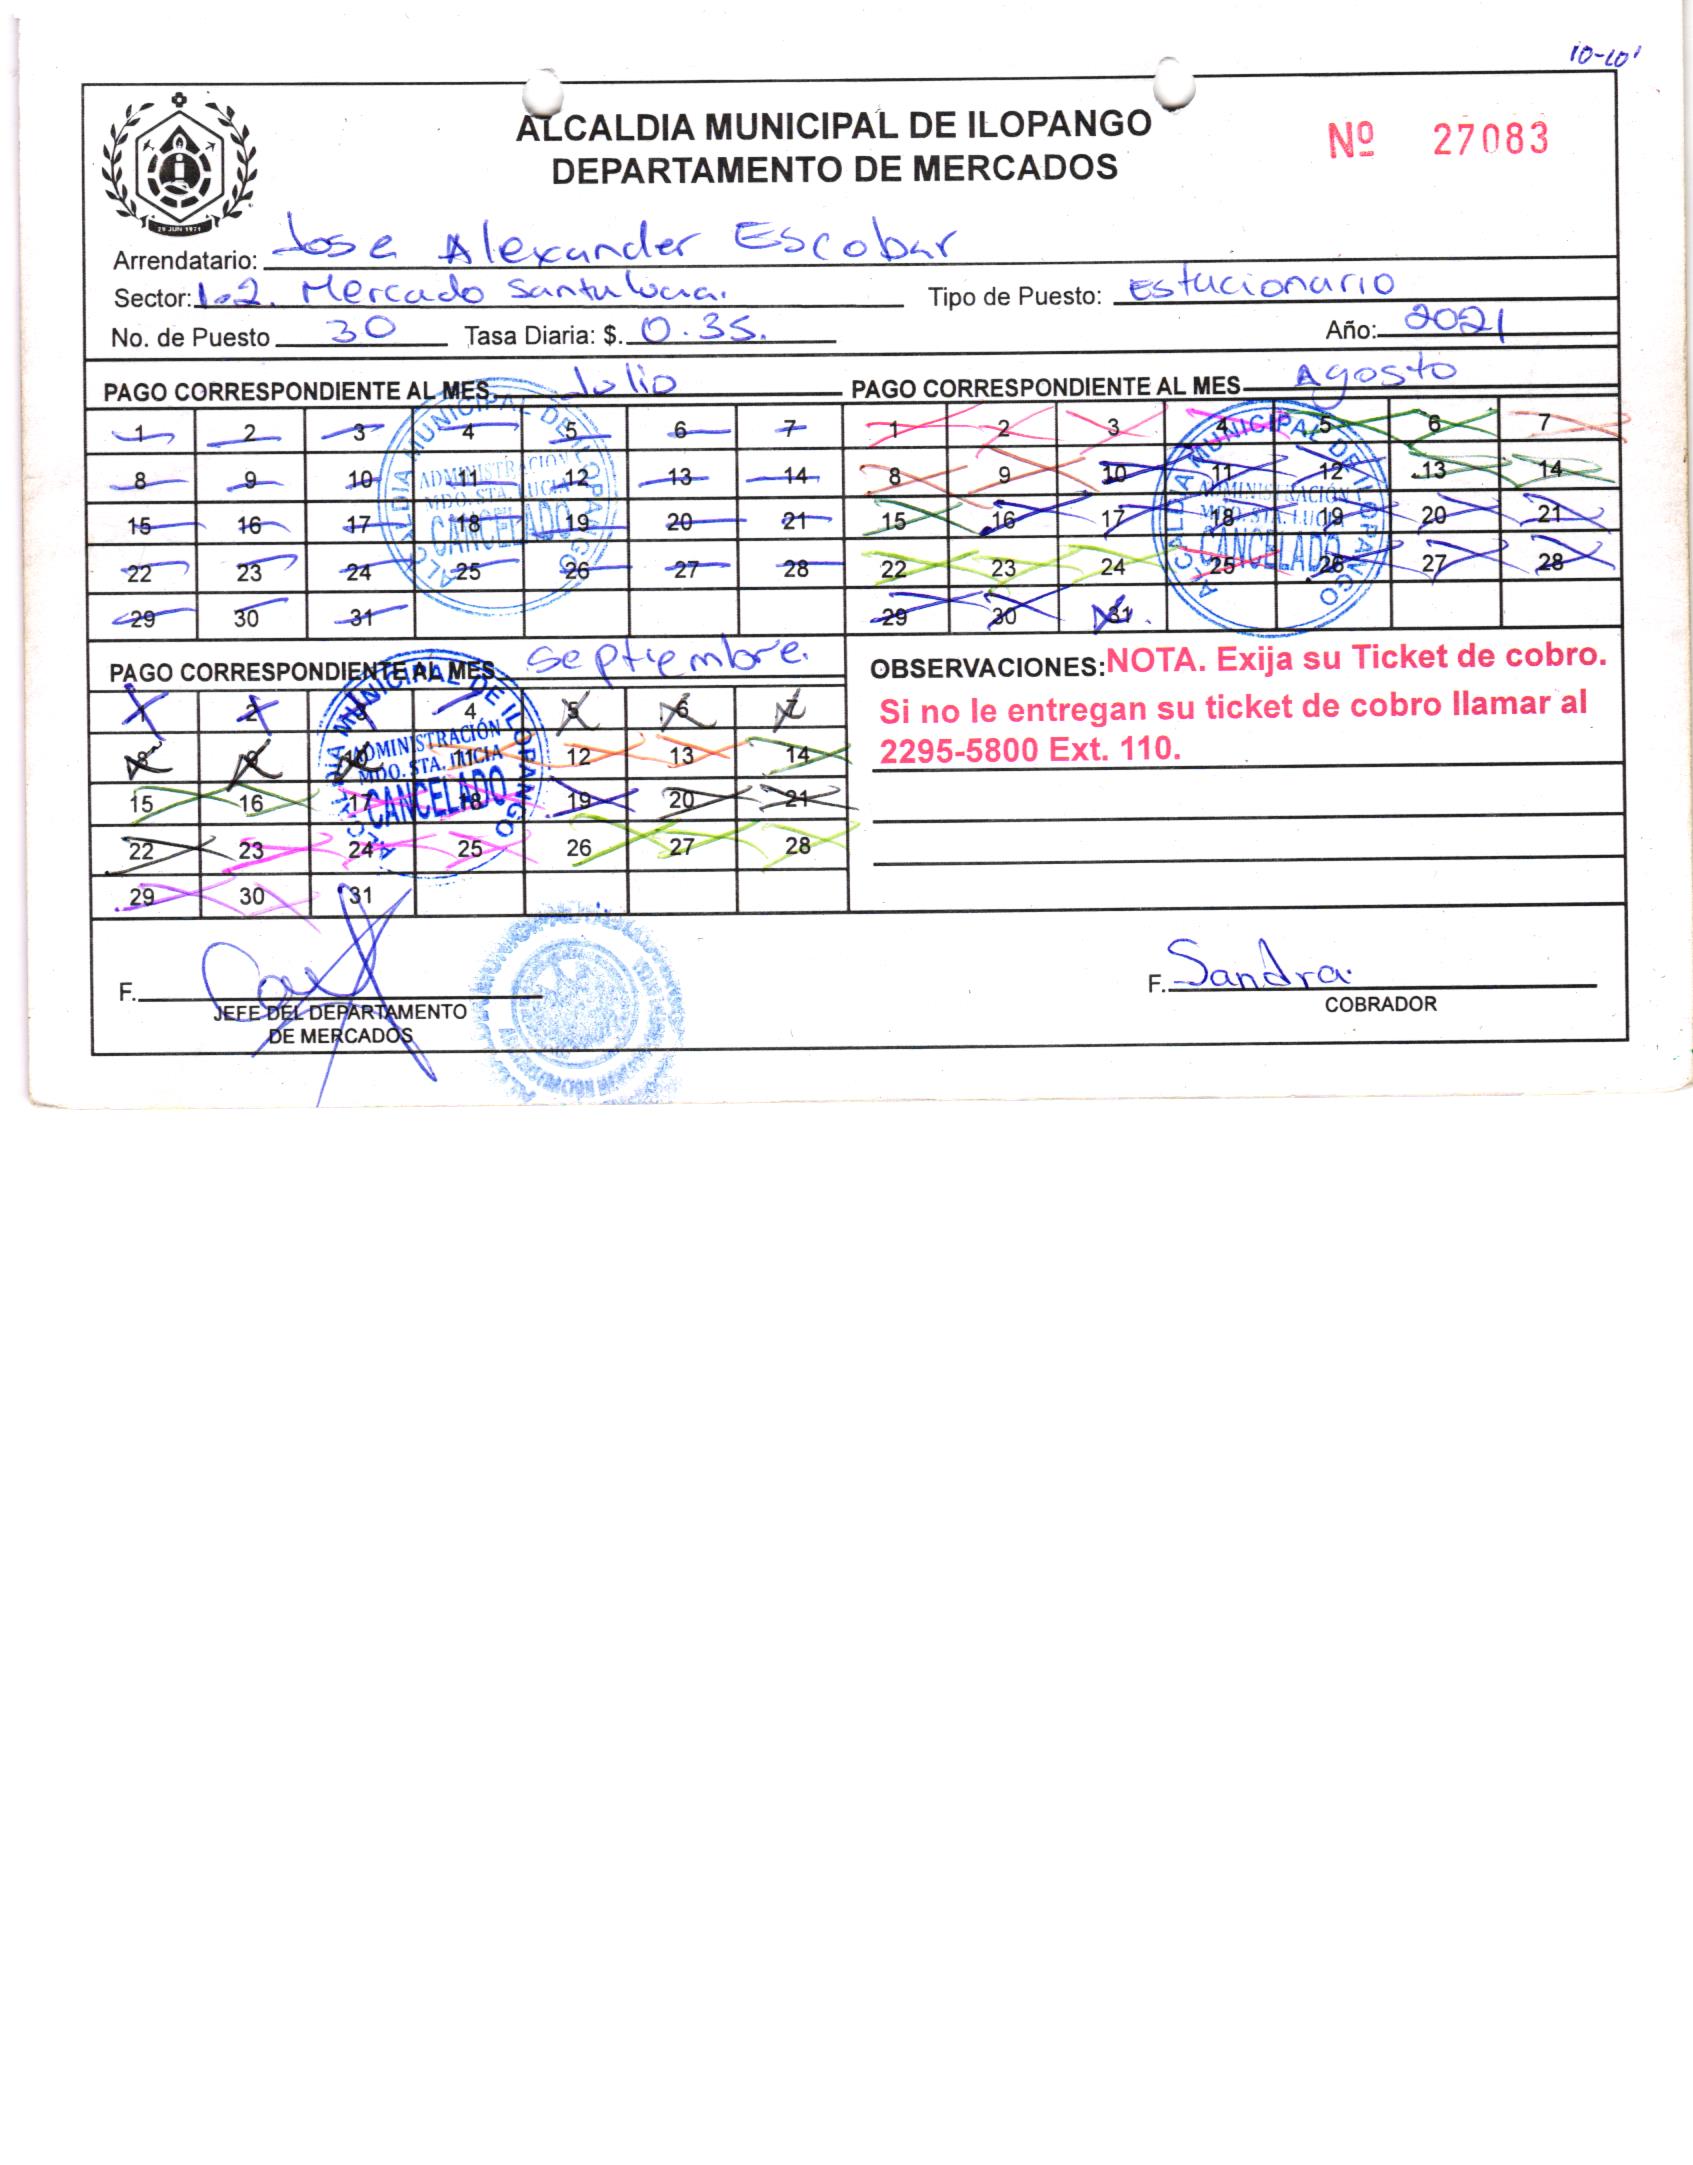 10-10'
ALCALDIA MUNICIPAL DE ILOPANGO
DEPARTAMENTO DE MERCADOS
Nº 27083
29 JUN 1971
Arrendatario: Jose Alexander Escobar
Sector: 1-2. Mercado Santa lucia. Tipo de Puesto: Estacionario
No. de Puesto 30 Tasa Diaria: $. 0.35. Año: 2021
PAGO CORRESPONDIENTE AL MES Julio
1 2 3 4 5 6 7
8 9 10 11 12 13 14
15 16 17 18 19 20 21
22 23 24 25 26 27 28
29 30 31
ALCALDIA MUNICIPAL DE ILOPANGO
ADMINISTRACION
MDO. STA. LUCIA
CANCELADO
PAGO CORRESPONDIENTE AL MES Agosto
1 2 3 4 5 6 7
8 9 10 11 12 13 14
15 16 17 18 19 20 21
22 23 24 25 26 27 28
29 30 31
ALCALDIA MUNICIPAL DE ILOPANGO
ADMINISTRACIÓN
MDO. STA. LUCIA
CANCELADO
PAGO CORRESPONDIENTE AL MES Septiembre.
1 2 3 4 5 6 7
8 9 10 11 12 13 14
15 16 17 18 19 20 21
22 23 24 25 26 27 28
29 30 31
ALCALDIA MUNICIPAL DE ILOPANGO
ADMINISTRACIÓN
MDO. STA. LUCIA
CANCELADO
OBSERVACIONES: NOTA. Exija su Ticket de cobro.
Si no le entregan su ticket de cobro llamar al
2295-5800 Ext. 110.
F.
JEFE DEL DEPARTAMENTO
DE MERCADOS
F. Sandra
COBRADOR